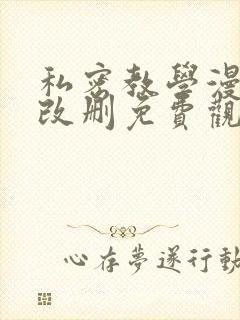 私密教學漫
改刪免費觀
心存夢遂行動